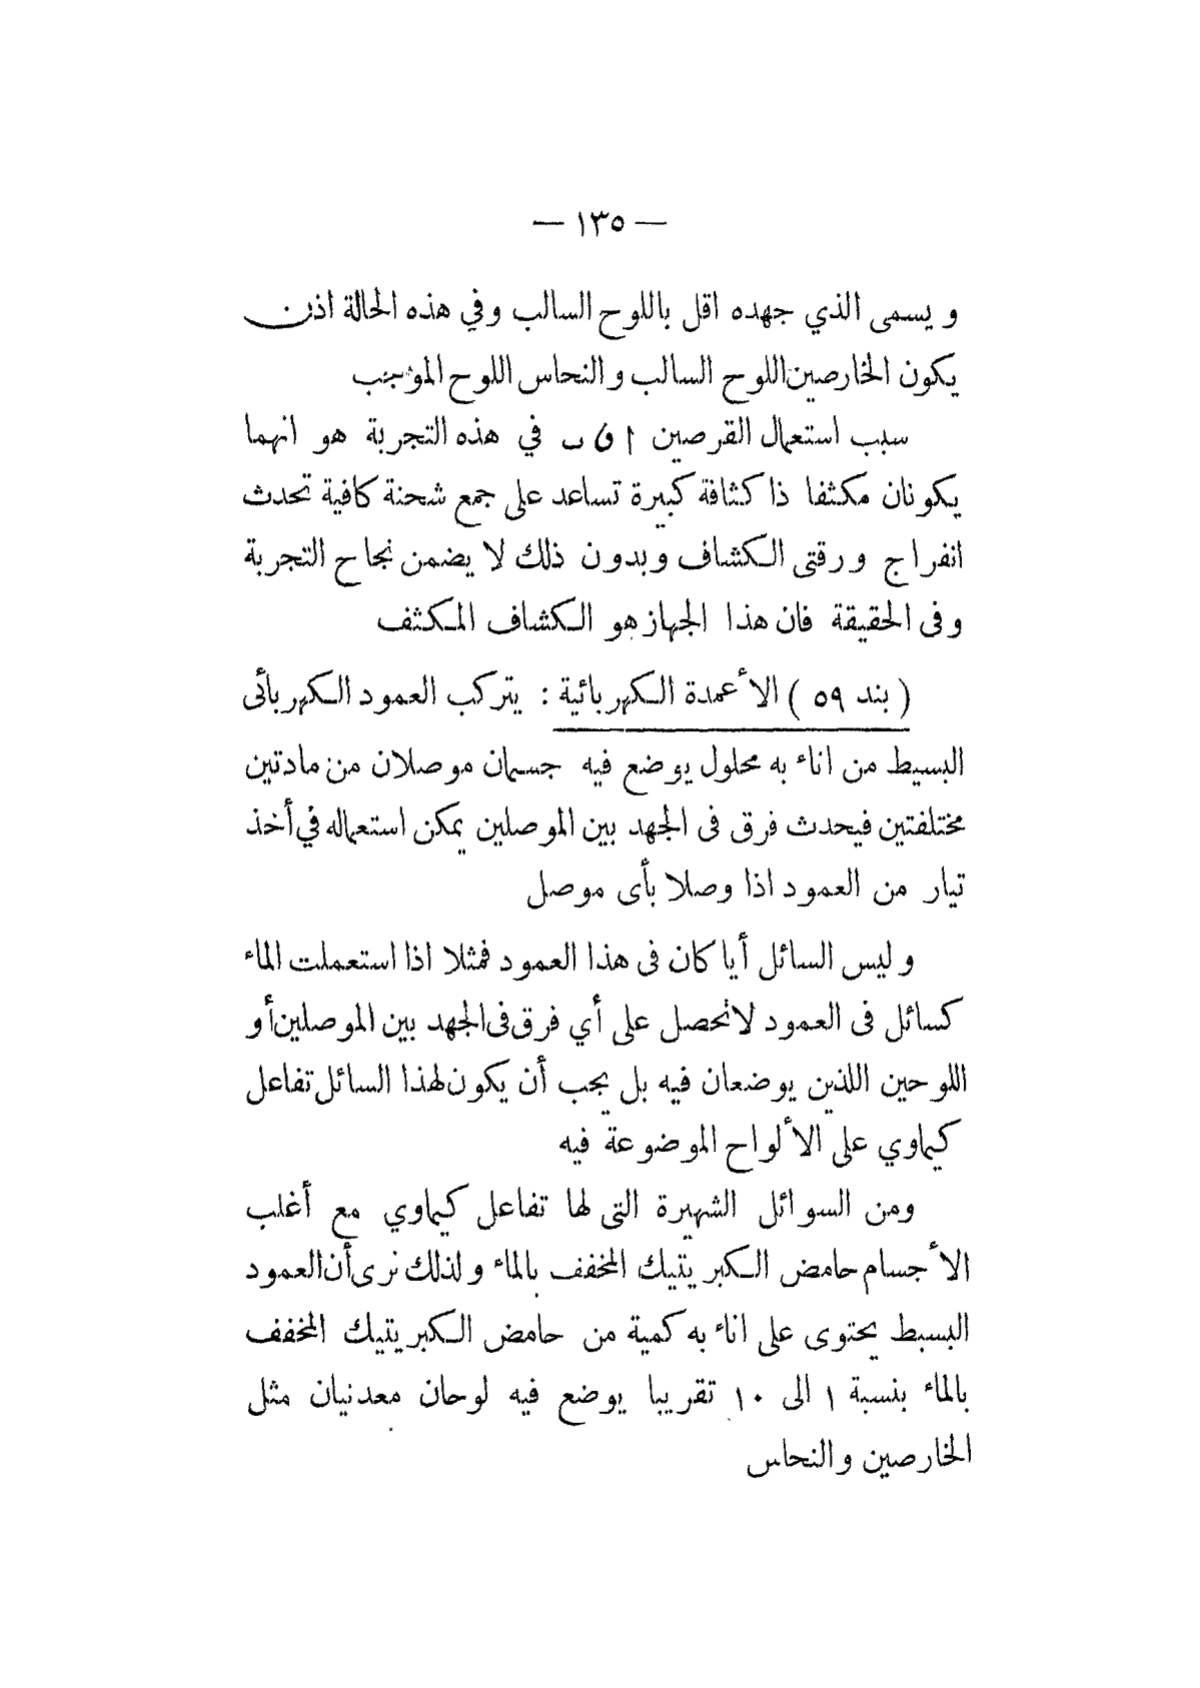 — ١٣٥ —
ويسمى الذي جهده اقل باللوح السالب وفي هذه الحالة اذن
يكون الخارصين اللوح السالب والنحاس اللوح الموجب
سبب استعمال القرصين ا ى ب في هذه التجربة هو انهما
يكونان مكثفا ذا كثافة كبيرة تساعد على جمع شحنة كافية تحدث
انفراج ورقتى الكشاف وبدون ذلك لا يضمن نجاح التجربة
وفى الحقيقة فان هذا الجهاز هو الكشاف المكثف
( بند ٥٩ ) الأعمدة الكهربائية : يتركب العمود الكهربائى
البسيط من اناء به محلول يوضع فيه جسمان موصلان من مادتين
مختلفتين فيحدث فرق فى الجهد بين الموصلين يمكن استعماله في أخذ
تيار من العمود اذا وصلا بأى موصل
وليس السائل أيا كان فى هذا العمود فمثلا اذا استعملت الماء
كسائل فى العمود لا نحصل على أي فرق فى الجهد بين الموصلين أو
اللوحين اللذين يوضعان فيه بل يجب أن يكون لهذا السائل تفاعل
كيماوي على الألواح الموضوعة فيه
ومن السوائل الشهيرة التى لها تفاعل كيماوي مع أغلب
الأجسام حامض الكبريتيك المخفف بالماء ولذلك نرى أن العمود
البسيط يحتوى على اناء به كمية من حامض الكبريتيك المخفف
بالماء بنسبة ١ الى ١٠ تقريبا يوضع فيه لوحان معدنيان مثل
الخارصين والنحاس